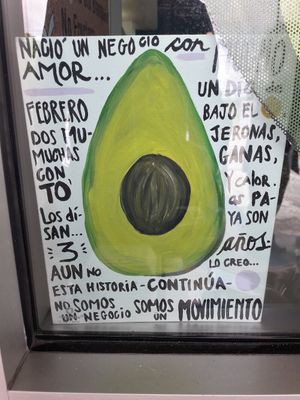 NACIÓ UN NEGOCIO con
AMOR... UN
FEBRERO BAJO EL
DOS MU- JERONAS,
MUCHAS GANAS,
CON Y CALOR.
TO
LOS DÍ- AS PA-
SAN... YA SON
3 años-
AUN NO LO CREO...
ESTA HISTORIA-CONTINÚA-
NO SOMOS UN NEGOCIO SOMOS UN MOVIMIENTO